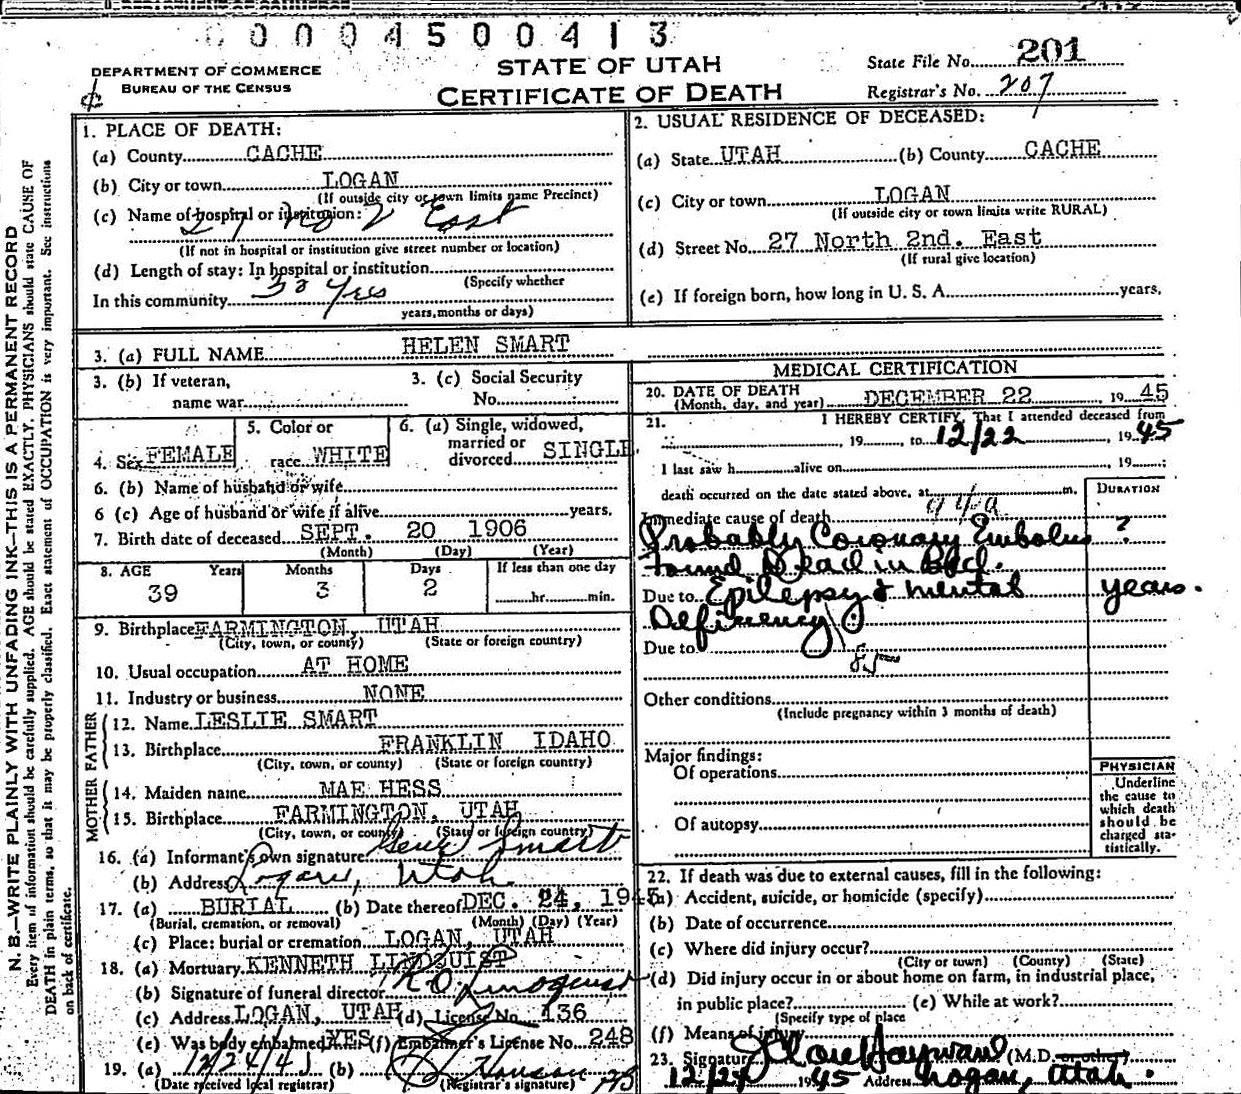 0004500413
DEPARTMENT OF COMMERCE
BUREAU OF THE CENSUS
STATE OF UTAH
CERTIFICATE OF DEATH
State File No. 201
Registrar's No. 207
N. B.—WRITE PLAINLY WITH UNFADING INK—THIS IS A PERMANENT RECORD
Every item of information should be carefully supplied. AGE should be stated EXACTLY. PHYSICIANS should state CAUSE OF
DEATH in plain terms, so that it may be properly classified. Exact statement of OCCUPATION is very important. See instructions
on back of certificate.
1. PLACE OF DEATH:
(a) County CACHE
(b) City or town LOGAN
(If outside city or town limits name Precinct)
(c) Name of hospital or institution:
27 No 2 East
(If not in hospital or institution give street number or location)
(d) Length of stay: In hospital or institution
(Specify whether
In this community 33 yrs
years, months or days)
2. USUAL RESIDENCE OF DECEASED:
(a) State UTAH (b) County CACHE
(c) City or town LOGAN
(If outside city or town limits write RURAL)
(d) Street No. 27 North 2nd. East
(If rural give location)
(e) If foreign born, how long in U. S. A. years.
3. (a) FULL NAME HELEN SMART
3. (b) If veteran,
name war
3. (c) Social Security
No.
4. Sex FEMALE
5. Color or
race WHITE
6. (a) Single, widowed,
married or
divorced SINGLE
6. (b) Name of husband or wife
6 (c) Age of husband or wife if alive years.
7. Birth date of deceased SEPT. 20 1906
(Month) (Day) (Year)
8. AGE Years Months Days If less than one day
39 3 2 hr. min.
9. Birthplace FARMINGTON, UTAH
(City, town, or county) (State or foreign country)
10. Usual occupation AT HOME
11. Industry or business NONE
FATHER
12. Name LESLIE SMART
13. Birthplace FRANKLIN IDAHO
(City, town, or county) (State or foreign country)
MOTHER
14. Maiden name MAE HESS
15. Birthplace FARMINGTON, UTAH
(City, town, or county) (State or foreign country)
16. (a) Informant's own signature Smart
(b) Address Logan, Utah.
17. (a) BURIAL (b) Date thereof DEC. 24, 1945
(Burial, cremation, or removal) (Month) (Day) (Year)
(c) Place: burial or cremation LOGAN, UTAH
18. (a) Mortuary KENNETH LINDQUIST
(b) Signature of funeral director K.O. Lindquist
(c) Address LOGAN, UTAH (d) License No. 136
(e) Was body embalmed YES (f) Embalmer's License No. 248
19. (a) 12/24/45 (b)
(Date received local registrar) (Registrar's signature)
MEDICAL CERTIFICATION
20. DATE OF DEATH
(Month, day, and year) DECEMBER 22, 1945
21. I HEREBY CERTIFY, That I attended deceased from
, 19 , to 12/22, 1945
I last saw h alive on , 19 ;
death occurred on the date stated above, at m.
DURATION
Immediate cause of death
Probably Coronary Embolus ?
found Dead in Bed.
Due to Epilepsy & mental years.
Deficiency
Due to
85
Other conditions
(Include pregnancy within 3 months of death)
Major findings:
Of operations
Of autopsy
PHYSICIAN
Underline
the cause to
which death
should be
charged sta-
tistically.
22. If death was due to external causes, fill in the following:
(a) Accident, suicide, or homicide (specify)
(b) Date of occurrence
(c) Where did injury occur?
(City or town) (County) (State)
(d) Did injury occur in or about home on farm, in industrial place,
in public place? (e) While at work?
(Specify type of place
(f) Means of injury
23. Signature Hayward (M.D. or other)
12/24 1945 Address Logan, Utah.